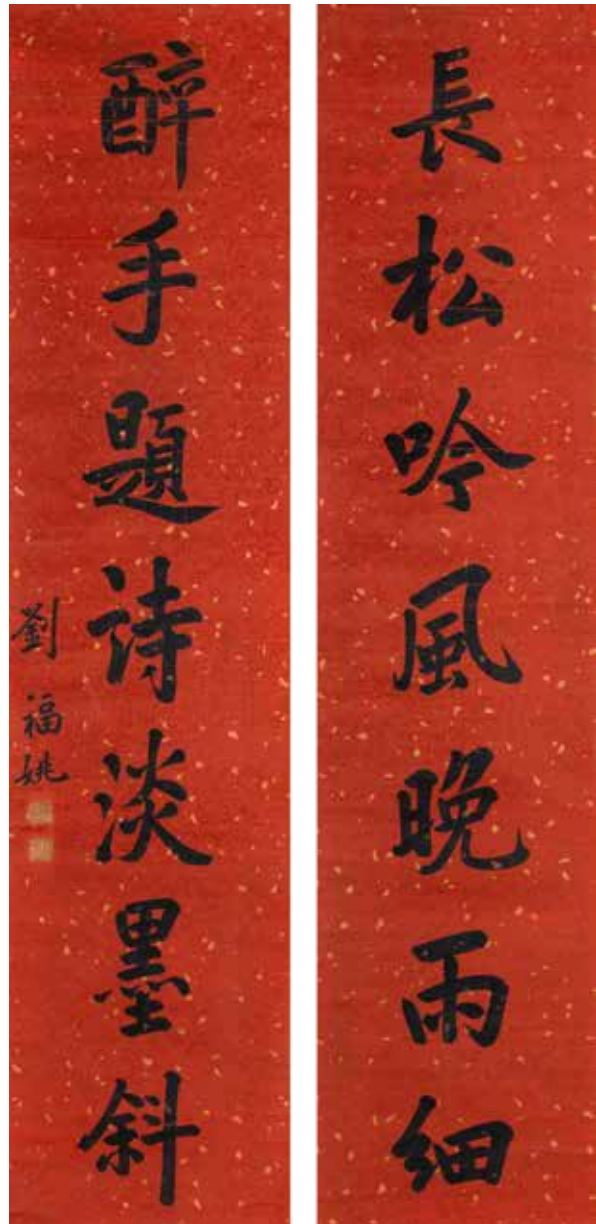 長松吟風晚雨細
醉手題詩淡墨斜
劉福姚